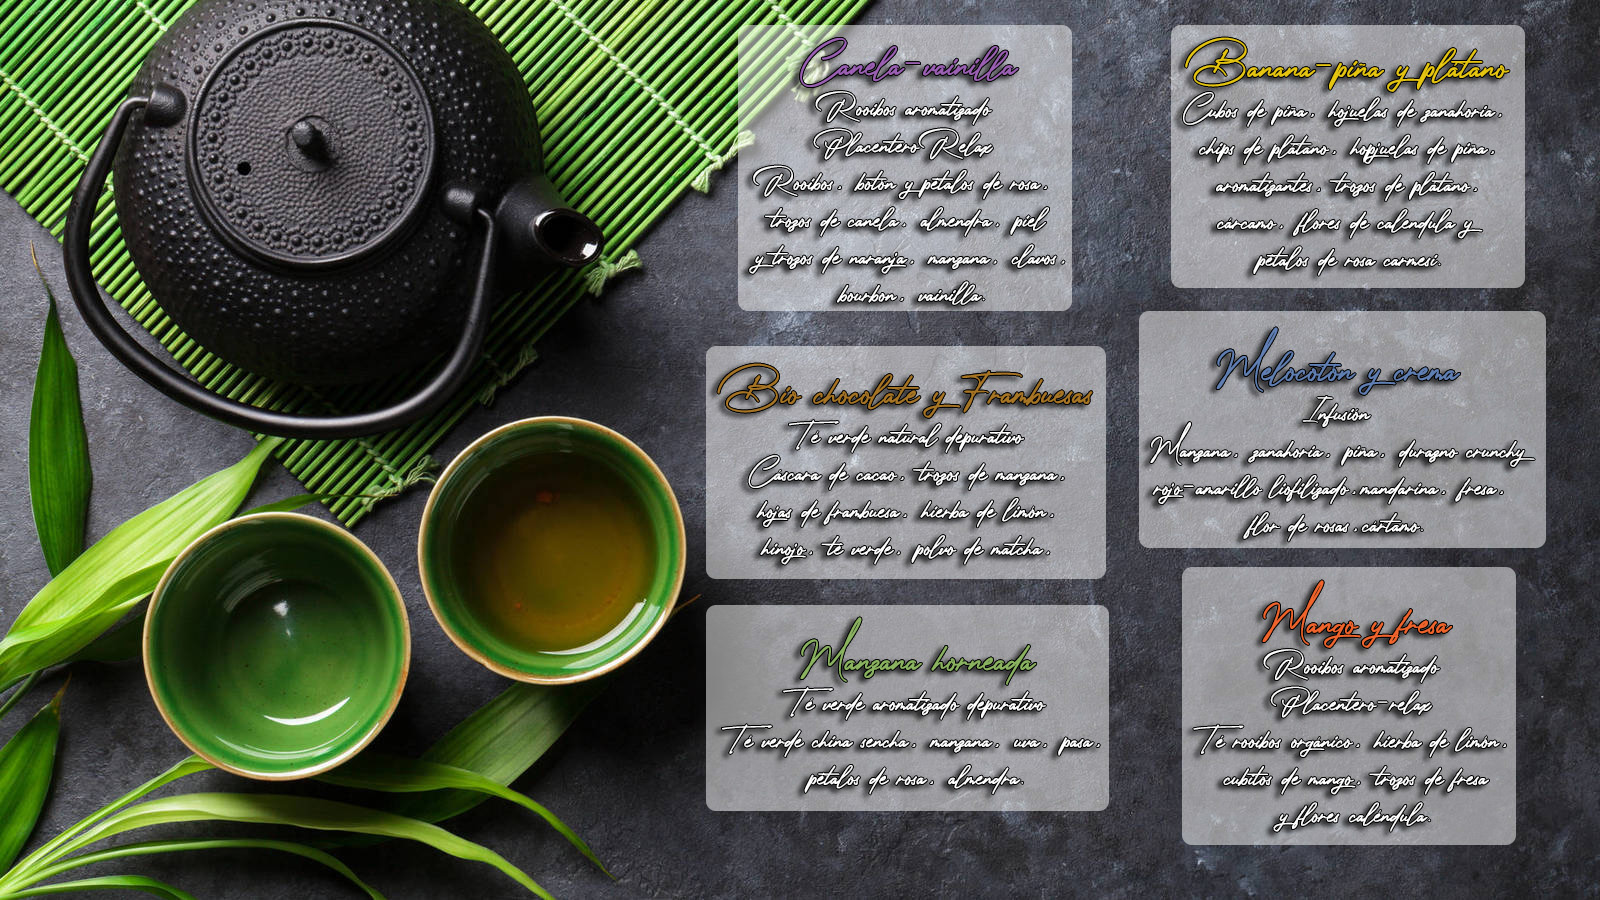 Canela-vainilla
Rooibos aromatizado
Placentero Relax
Rooibos, botón y pétalos de rosa,
trozos de canela, almendra, piel
y trozos de naranja, manzana, clavos,
bourbon, vainilla.
Bio chocolate y Frambuesas
Té verde natural depurativo
Cáscara de cacao, trozos de manzana,
hojas de frambuesa, hierba de limón,
hinojo, té verde, polvo de matcha,
Manzana horneada
Té verde aromatizado depurativo
Té verde china sencha, manzana, uva, pasa,
pétalos de rosa, almendra.
Banana-piña y plátano
Cubos de piña, hojuelas de zanahoria,
chips de plátano, hopjuelas de piña,
aromatizantes, trozos de plátano,
cárcamo, flores de caléndula y
pétalos de rosa carmesí.
Melocotón y crema
Infusión
Manzana, zanahoria, piña, durazno crunchy
rojo-amarillo liofilizado,mandarina, fresa,
flor de rosas,cártamo.
Mango y fresa
Rooibos aromatizado
Placentero-relax
Té rooibos orgánico, hierba de limón,
cubitos de mango, trozos de fresa
y flores caléndula.